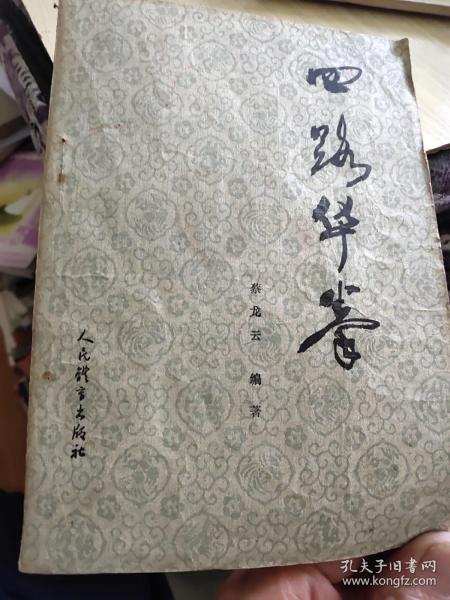 四路华拳
蔡龙云 编著
人民体育出版社
孔夫子旧书网
www.kongfz.com